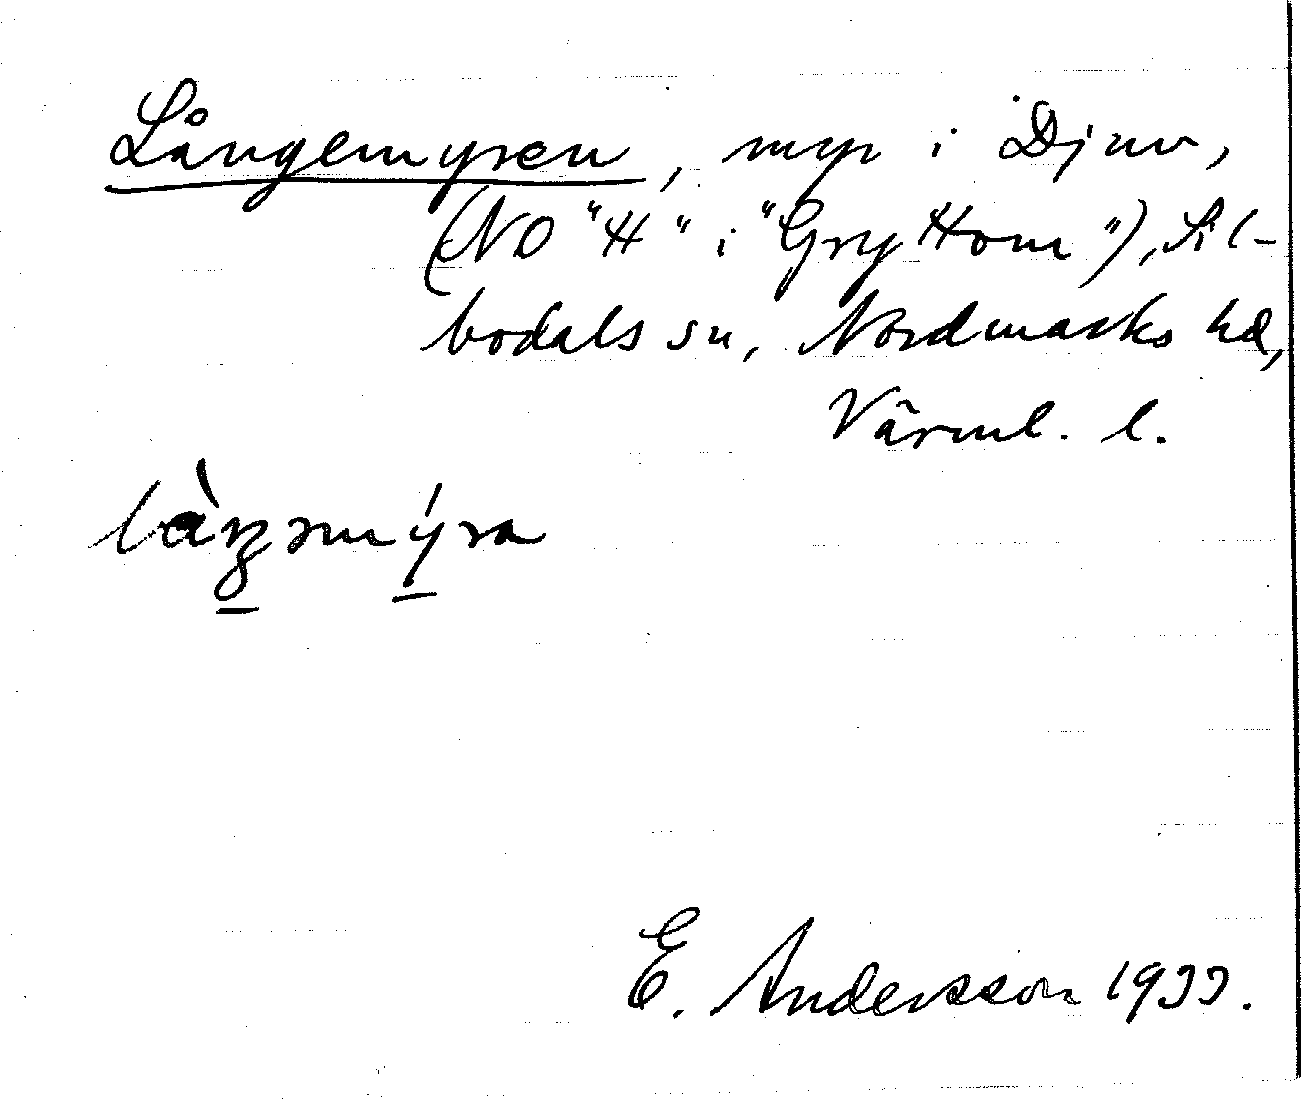 Långemyren, myr i Djuv,
(NO "H" i "Gryttom"), Sil-
bodals sn, Nordmarks hd,
Värml. l.
E. Andersson 1933.